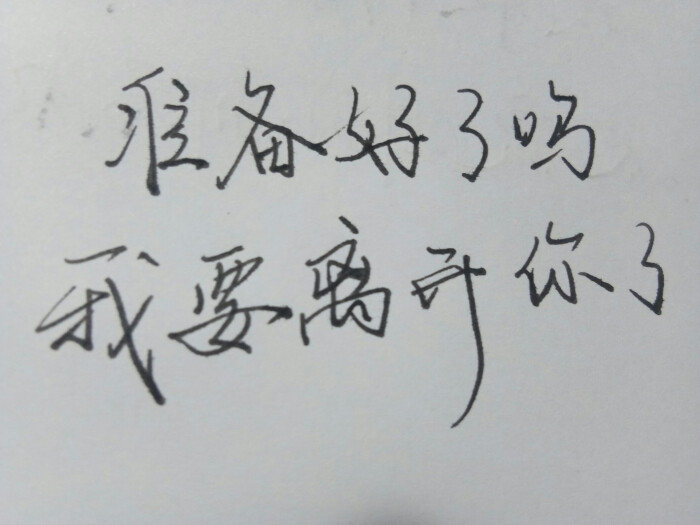 准备好了吗
我要离开你了